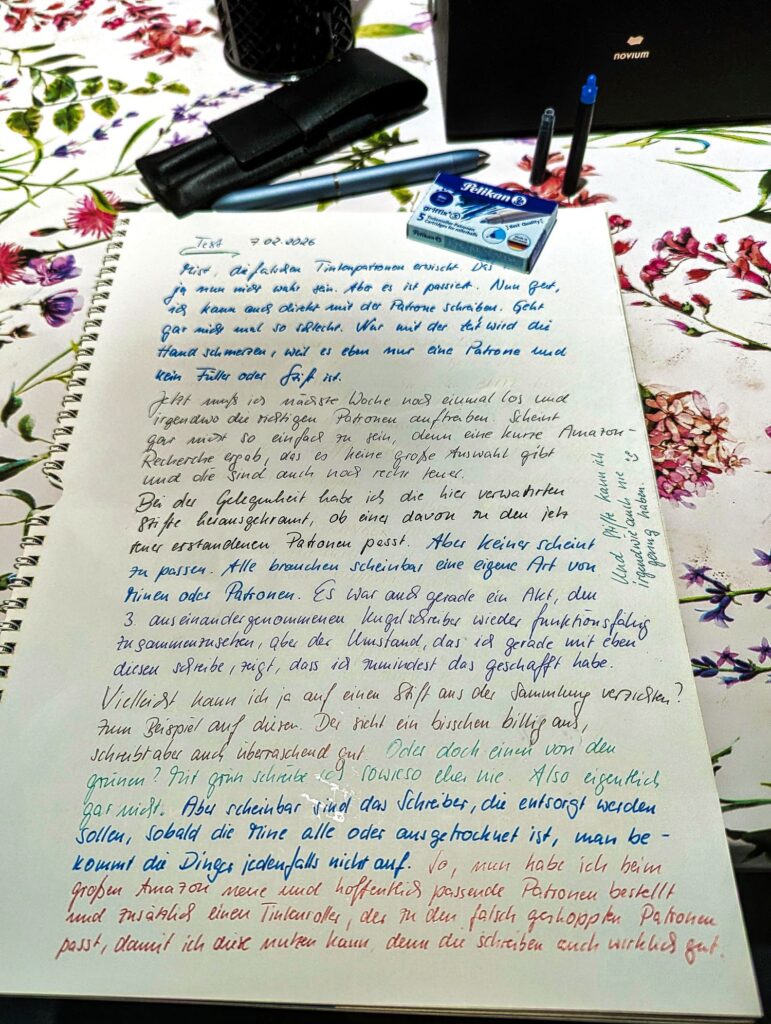 novium
Pelikan
griffix
5
Tintenroller-Patronen
Cartridges for rollerballs
Best Quality
Pelikan
Test 7.02.2026
Mist, die falschen Tintenpatronen erwischt. Das
ja nun nicht wahr sein. Aber es ist passiert. Nun gut,
ich kann auch direkt mit der Patrone schreiben. Geht
gar nicht mal so schlecht. Nur mit der Zeit wird die
Hand schmerzen, weil es eben nur eine Patrone und
kein Füller oder Stift ist.
Jetzt muß ich nächste Woche noch einmal los und
irgendwo die richtigen Patronen auftreiben. Scheint
gar nicht so einfach zu sein, denn eine kurze Amazon-
Recherche ergab, das es keine große Auswahl gibt
und die sind auch noch recht teuer.
Bei der Gelegenheit habe ich die hier verwahrten
Stifte herausgekramt, ob einer davon zu den
erstandenen Patronen passt. Aber keiner scheint
zu passen. Alle brauchen scheinbar eine eigene Art von
Minen oder Patronen. Es war auch gerade ein Akt, den
3 auseinandergenommenen Kugelschreiber wieder funktionsfähig
zusammenzusetzen, aber der Umstand, das ich gerade mit eben
diesen schreibe, zeigt, dass ich zumindest das geschafft habe.
Vielleicht kann ich ja auf einen Stift aus der Sammlung verzichten?
Zum Beispiel auf diesen. Der sieht ein bisschen billig aus,
schreibt aber auch überraschend gut. Oder doch einen von den
grünen? Mit grün schreibe ich sowieso eher nie. Also eigentlich
gar nicht. Aber scheinbar sind das Schreiber, die entsorgt werden
sollen, sobald die Mine alle oder ausgetrocknet ist, man be-
kommt die Dinger jedenfalls nicht auf. So, nun habe ich beim
großen Amazon neue und hoffentlich passende Patronen bestellt
und zusätzlich einen Tintenroller, der zu den falsch geshoppten Patronen
passt, damit ich diese nutzen kann, denn die schreiben auch wirklich gut.
Und Stifte kann ich
irgendwie auch nie
genug haben.